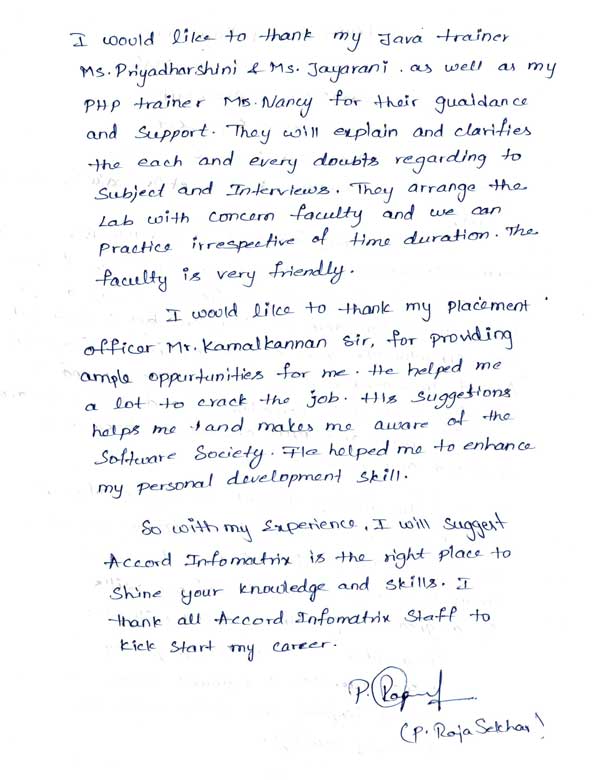 I would like to thank my Java trainer
Ms. Priyadharshini & Ms. Jayarani. as well as my
PHP trainer Ms. Nancy for their guaidance
and Support. They will explain and clarifies
the each and every doubts regarding to
Subject and Interviews. They arrange the
Lab with concern faculty and we can
Practice irrespective of time duration. The
faculty is very friendly.
I would like to thank my Placement
officer Mr. Kamalkannan Sir, for providing
ample oppurtunities for me. He helped me
a lot to crack the job. His Suggetions
helps me and makes me aware of the
Software Society. He helped me to enhance
my personal development skill.
So with my Experience, I will suggest
Accord Infomatrix is the right place to
Shine your knowledge and skills. I
thank all Accord Infomatrix Staff to
Kick Start my career.
(P. Raja Sekhar)